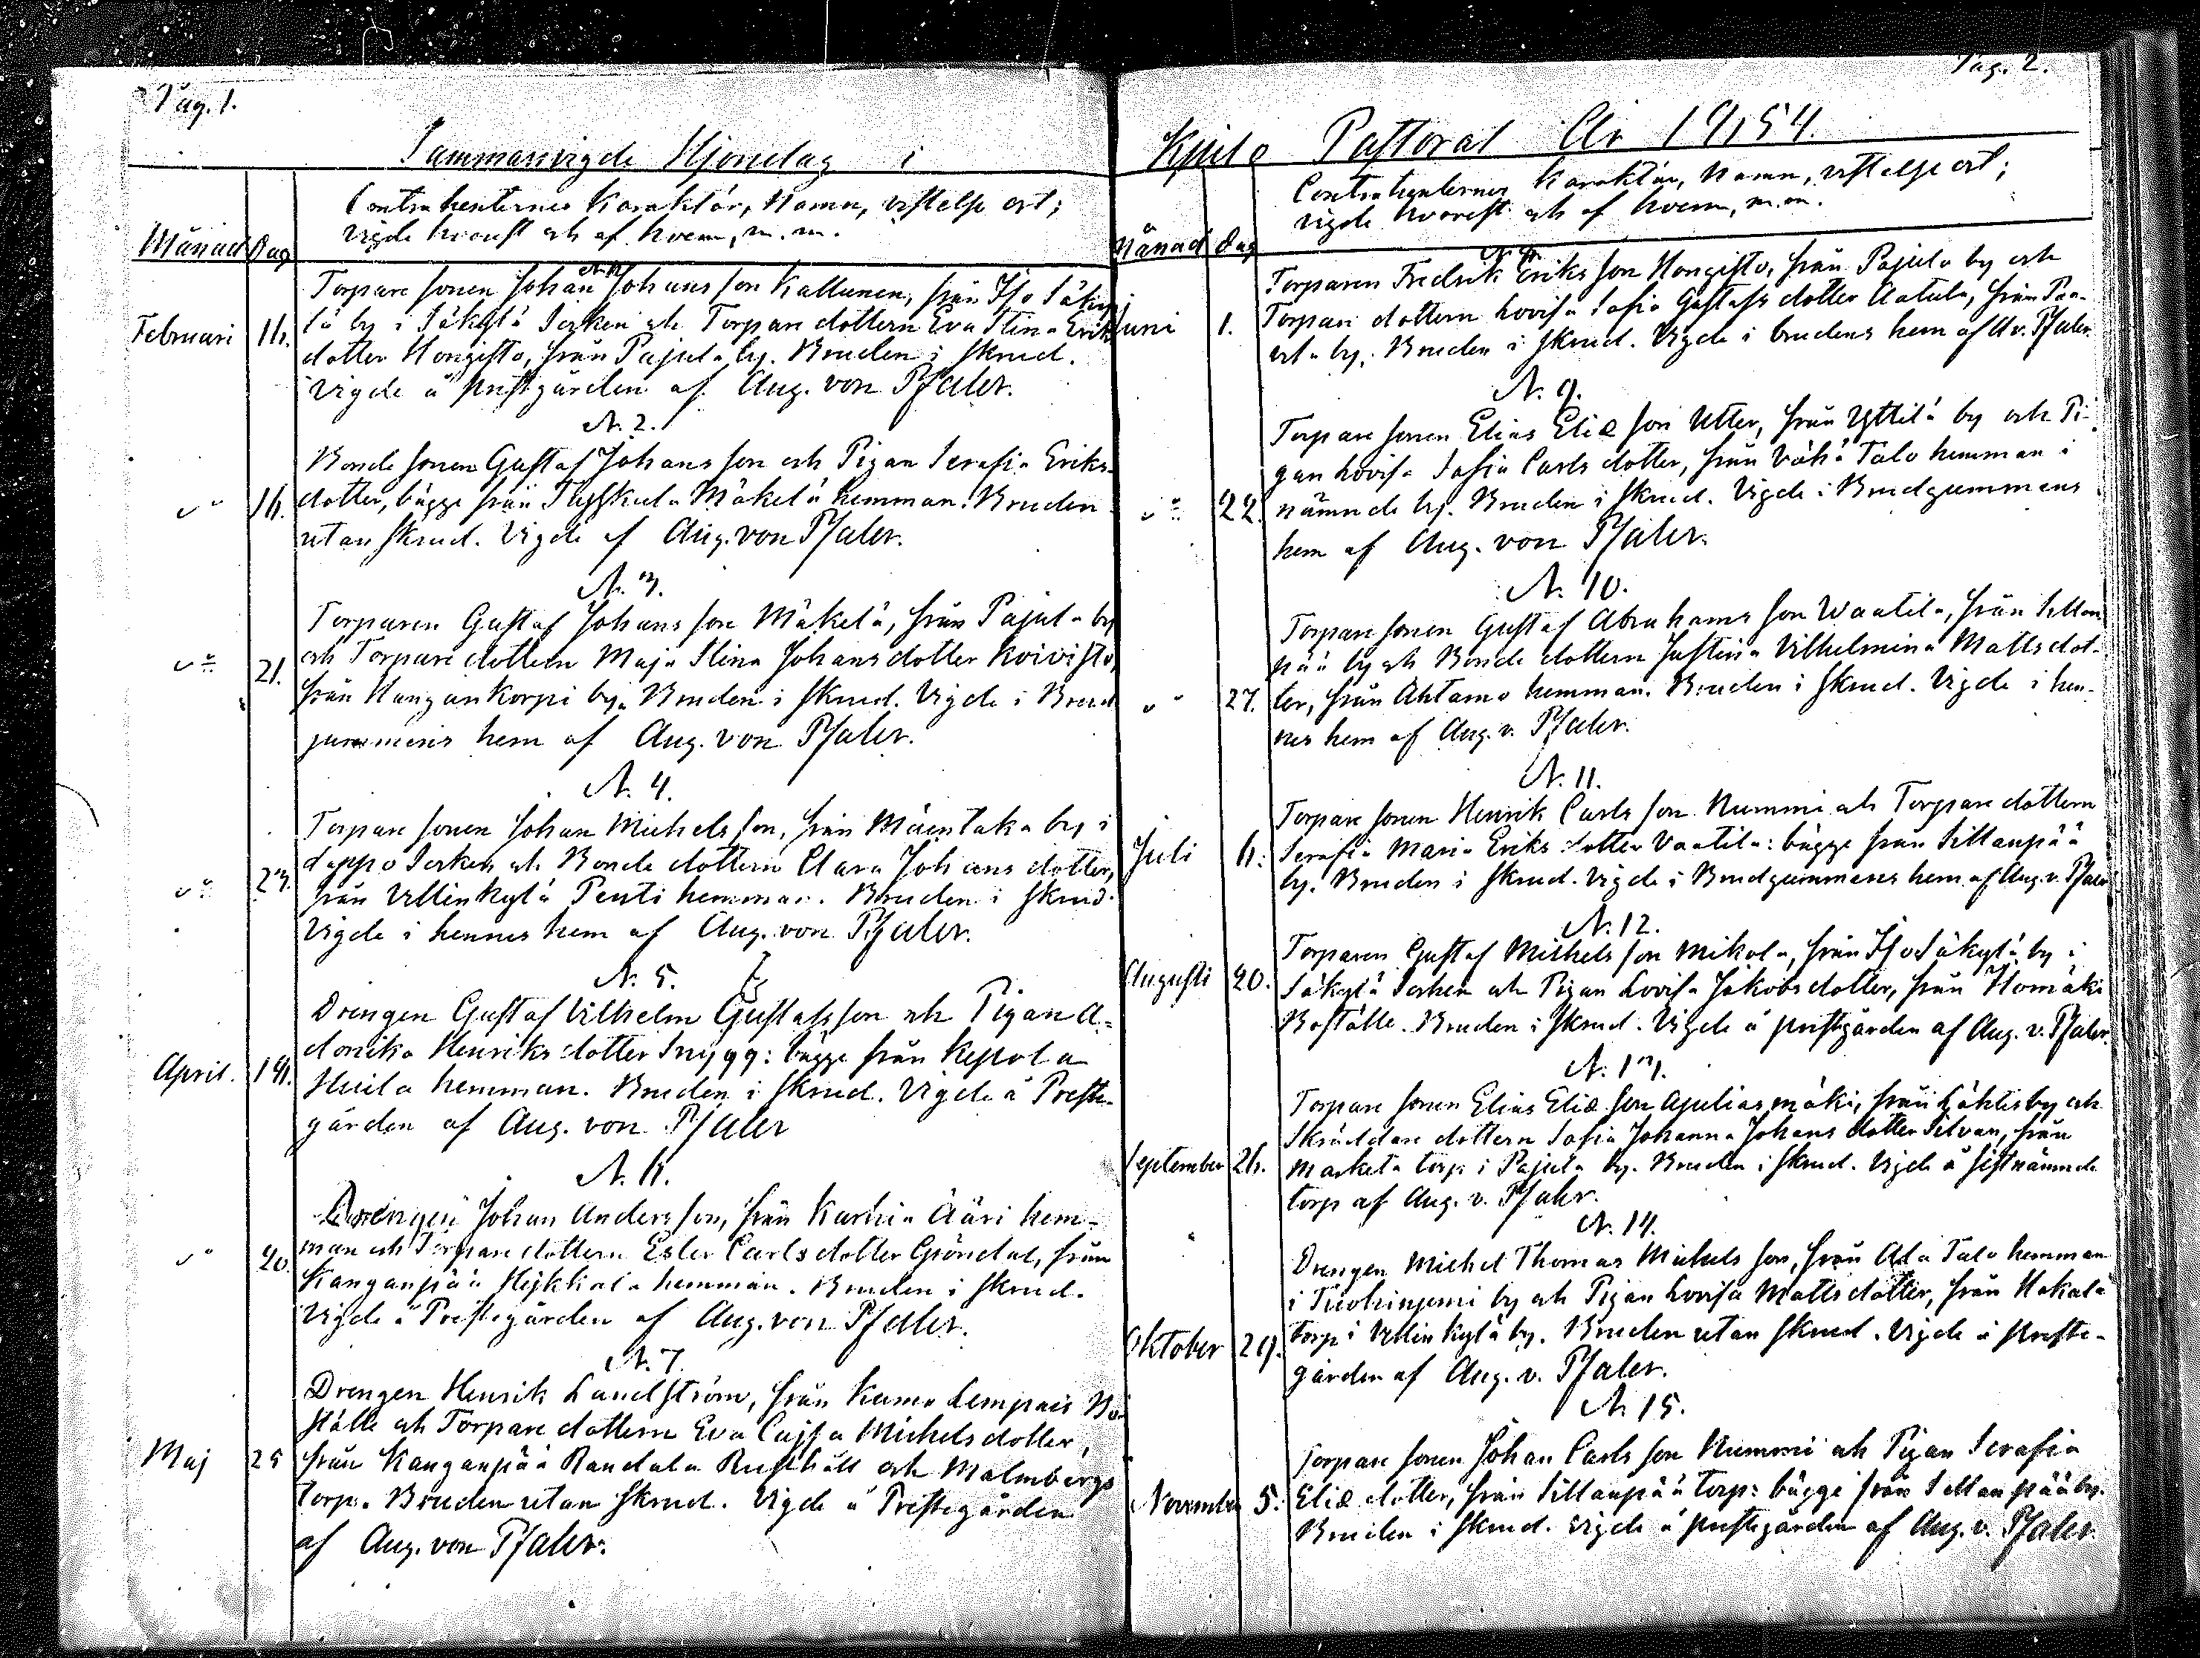 Pag. 1.
Sammanvigde Hjonelag i
Contrahenternes Karakter, Namn, vistelse ort;
vigde hvarest och af hvem, m. m.
Månad Dag
N. 1.
Torpare sonen Johan Johans son Kallunen, från Iso Säky-
lä by i Säkylä Socken och Torpare dottern Eva Stina Eriks
Februari 16.
dotter Hongisto, från Pajula by. Bruden i skrud.
Vigde å prestgården af Aug. von Pfaler.
N. 2.
Bonde sonen Gustaf Johans son och Pigan Serafia Eriks-
16. dotter, bägge från Mäkelä hemman. Bruden
utan skrud. Vigde af Aug. von Pfaler.
N. 3.
Torparen Gustaf Johans son Mäkelä, från Pajula by
21. och Torpare dottern Maja Stina Johans dotter Koivisto,
från Kangankorpi by. Bruden i skrud. Vigde i Brud
gummens hem af Aug. von Pfaler.
N. 4.
Torpare sonen Johan Michels son, från Mäentaka by i
23. Lappo Socken och Bonde dottern Clara Johans dotter,
från Villinkylä Penti hemman. Bruden i skrud.
Vigde i hennes hem af Aug. von Pfaler.
N. 5.
Drengen Gustaf Vilhelm Gustafsson och Pigan A-
donika Henriks dotter Snygg: bägge från Kepola
April. 18.
Huila hemman. Bruden i skrud. Vigde å Preste-
gården af Aug. von Pfaler
N. 6.
Drengen Johan Anders son, från Karhia Ääri hem-
20. man och Torpare dottern Ester Carls dotter Gröndal, från
Kanganpää Heikkilä hemman. Bruden i skrud.
Vigde å Prestegården af Aug. von Pfaler.
N. 7.
Drengen Henrik Landström, från Kumo Lempais Bo-
ställe och Torpare dottern Eva Cajsa Michels dotter,
Maj 25 från Kanganpää Randala Rusthåll och Malmbergs
torp. Bruden utan skrud. Vigde å Prestegården
af Aug. von Pfaler.
Pag. 2.
Kjulo Pastorat År 1854.
Contrahenternes Karakter, Namn, vistelse ort;
vigde hvarest och af hvem, m. m.
Månad Dag
N. 8.
Torparen Fredrik Eriks son Hongisto, från Pajula by och
Juni 1. Torpare dottern Lovisa Sofia Gustafs dotter Aatula, från
by. Bruden i skrud. Vigde i brudens hem af A v. Pfaler.
N. 9.
Torpare sonen Elias Eliæ son Utter, från Yttilä by och Pi-
gan Lovisa Sofia Carls dotter, från Vähä Talo hemman i
22. nämnde by. Bruden i skrud. Vigde i Brudgummens
hem af Aug. von Pfaler.
N. 10.
Torpare sonen Gustaf Abrahams son Waatila, från Sillan-
pää by och Bonde dottern Justina Vilhelmina Matts dot-
27. ter, från Ahtamo hemman. Bruden i skrud. Vigde i hen-
nes hem af Aug. v. Pfaler.
N. 11.
Torpare sonen Henrik Carls son Nummi och Torpare dottern
Juli 6. Serafia Maria Eriks dotter Vaatila: bägge från Sillanpää
by. Bruden i skrud. Vigde i Brudgummens hem af Aug. v. Pfaler
N. 12.
Torparen Gustaf Michels son Mikola, från Iso Säkylä by i
Augusti 20. Säkylä Socken och Pigan Lovisa Jakobs dotter, från Homäki
Boställe. Bruden i skrud. Vigde å prestgården af Aug. v. Pfaler.
N. 13.
Torpare sonen Elias Eliæ son Apuliasmäki, från Lähtis by och
Skräddare dottern Sofia Johanna Johans dotter Silvan, från
September 26. Markela torp i Pajula by. Bruden i skrud. Vigde å sistnämnde
torp af Aug. v. Pfaler.
N. 14.
Drengen Michel Thomas Michels son, från Ala Talo hemman
i Tuohiniemi by och Pigan Lovisa Matts dotter, från Hakala
Oktober 29. torp i Villinkylä by. Bruden utan skrud. Vigde å preste-
gården af Aug. v. Pfaler.
N. 15.
Torpare sonen Johan Carls son Nummi och Pigan Serafia
November 5. Eliæ dotter, från Sillanpää torp: bägge från Sillanpää by.
Bruden i skrud. Vigde å prestegården af Aug. v. Pfaler.